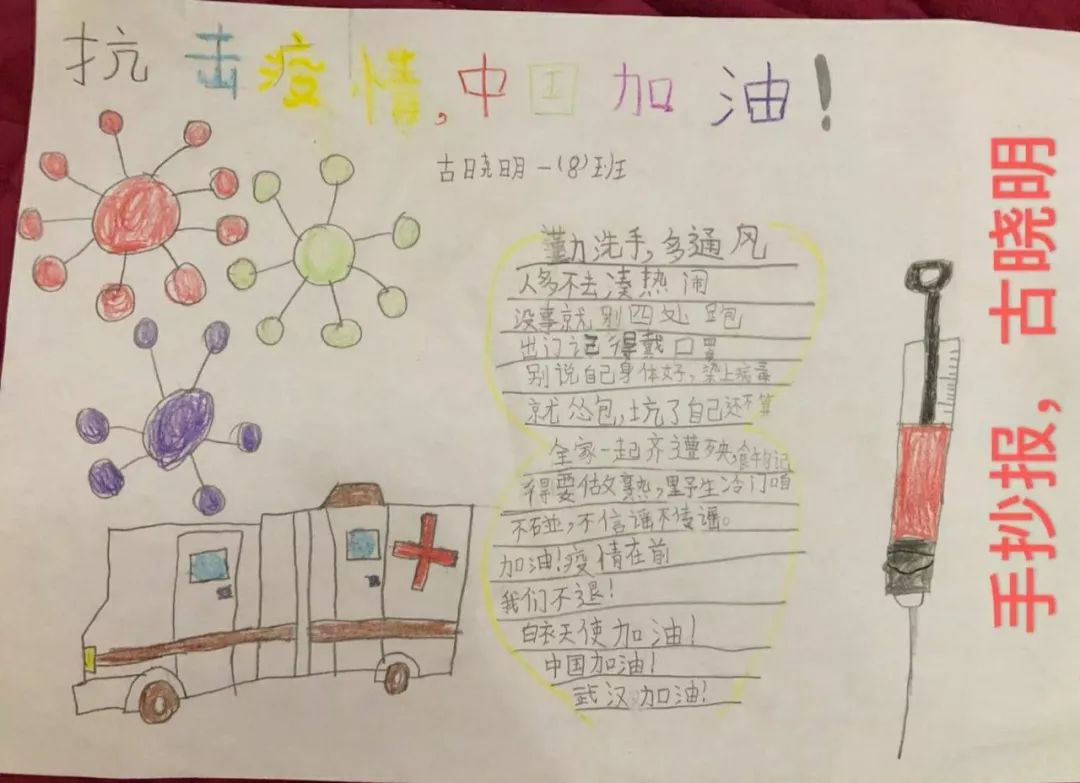 抗击疫情,中国加油!
古晓明 一(8)班
勤洗手,多通风
人多不去凑热闹
没事就别四处跑
出门记得戴口罩
别说自己身体好,染上病毒
就怂包,坑了自己还不算
全家一起齐遭殃,食物记
得要做熟,野生冷门咱
不碰,不信谣不传谣。
加油!疫情在前
我们不退!
白衣天使加油!
中国加油!
武汉加油!
手抄报,古晓明